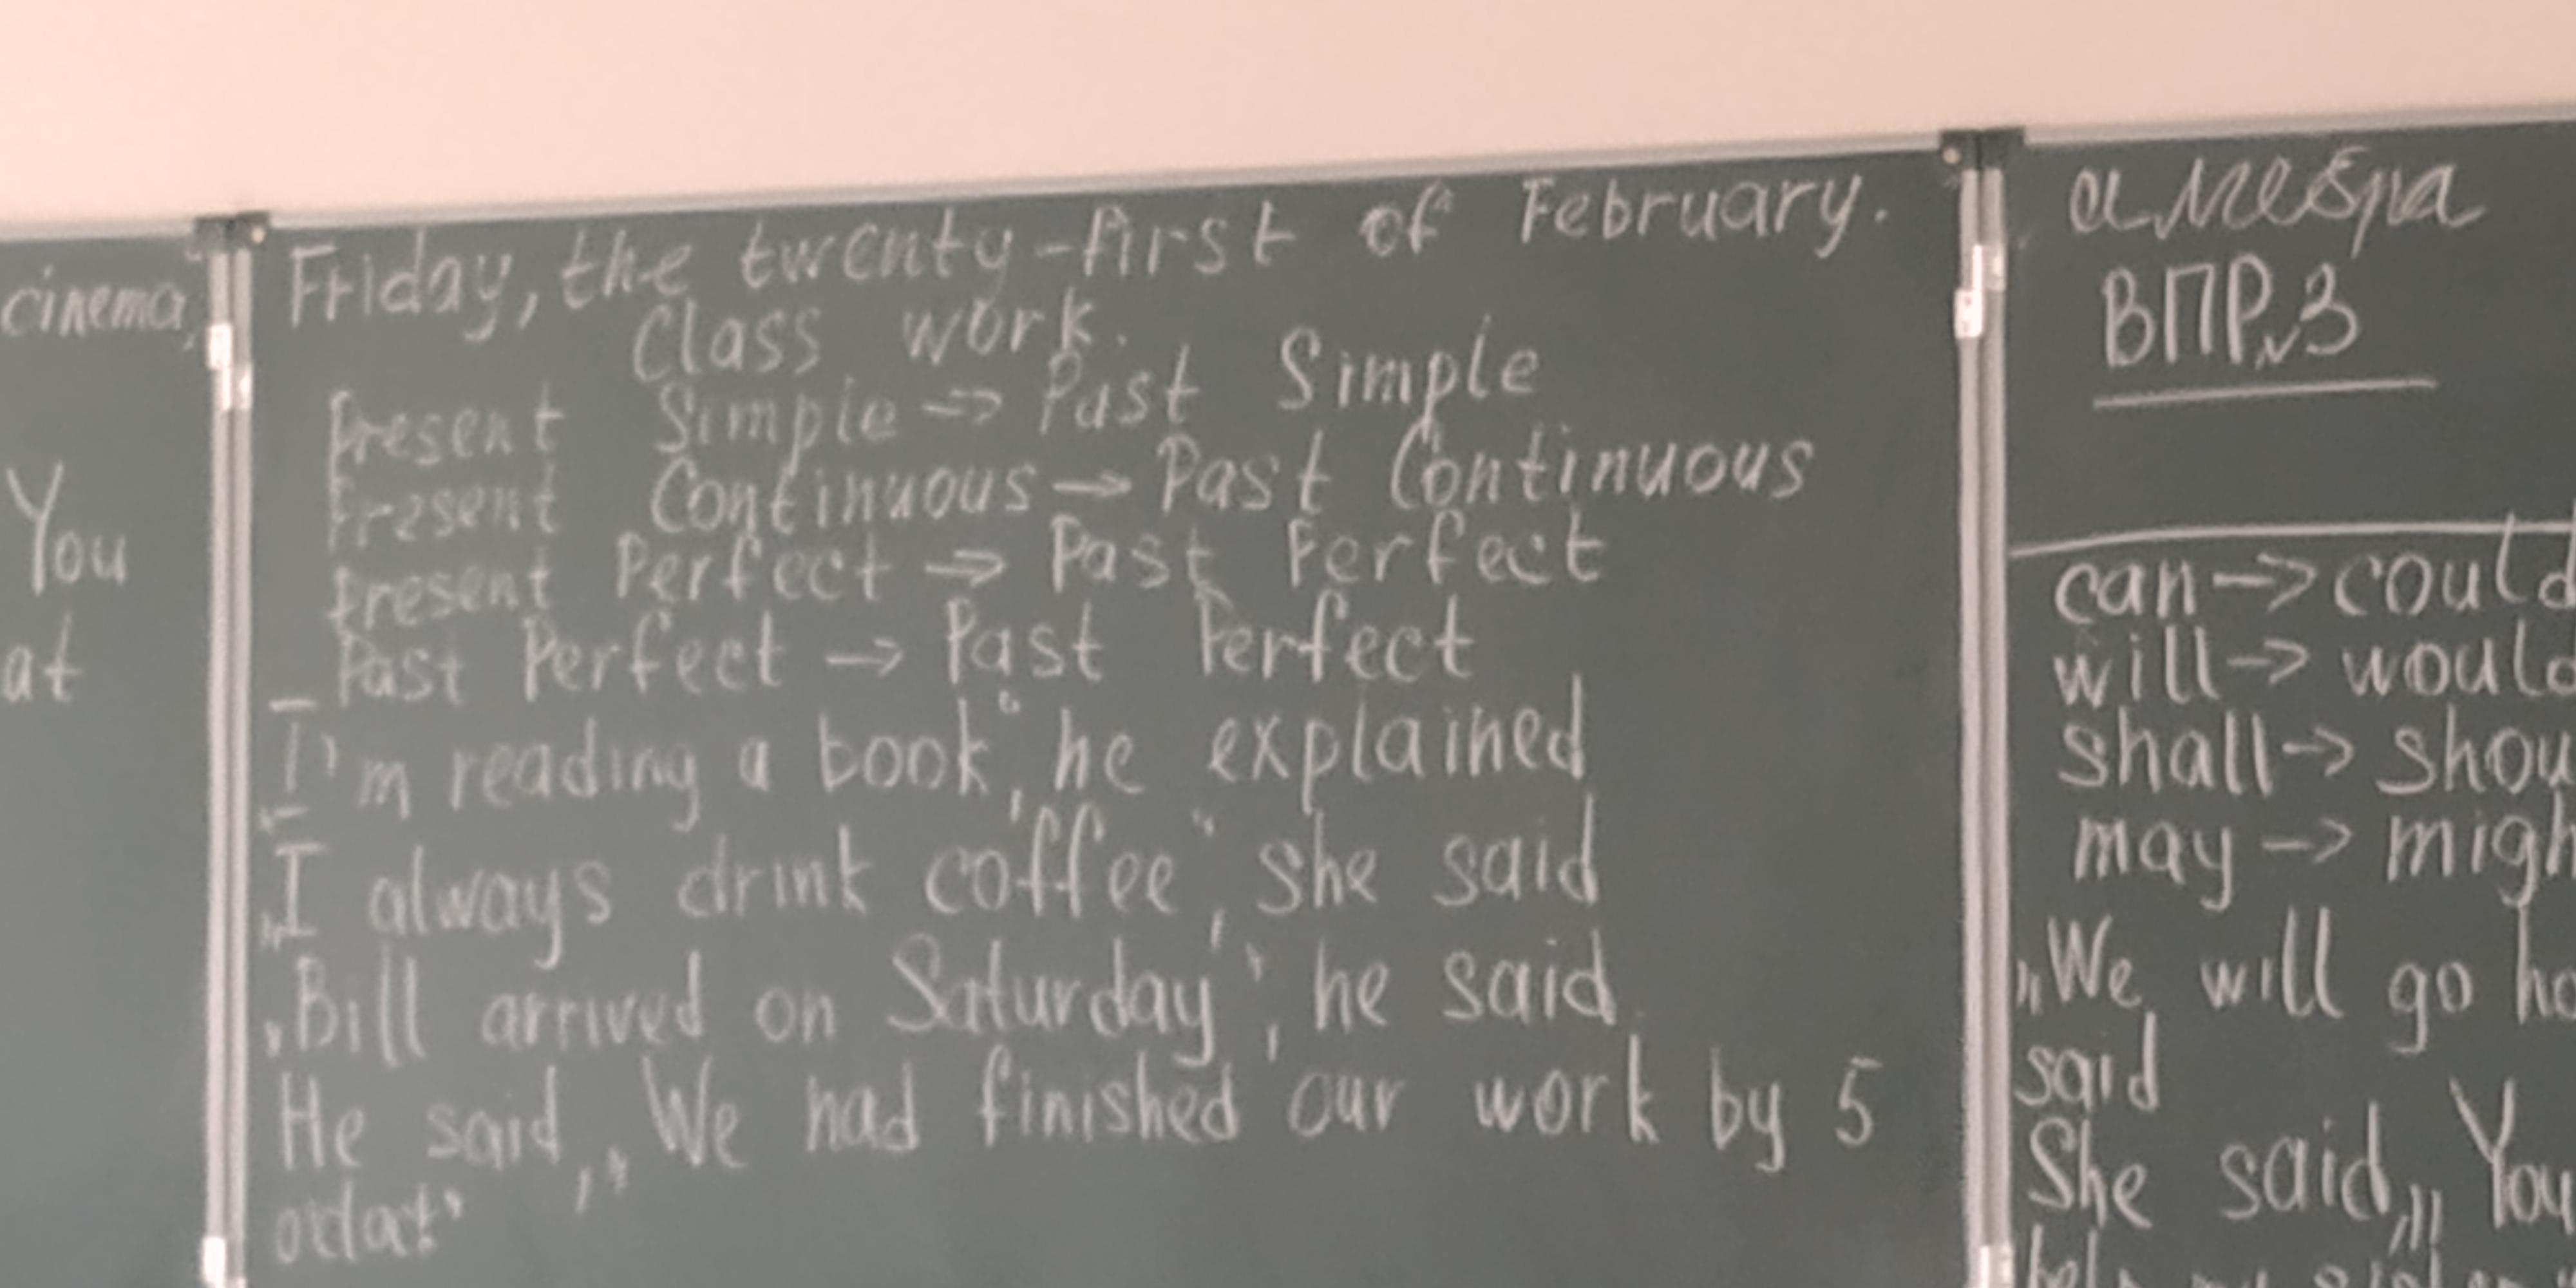 cinema,
You
at
Friday, the twenty-first of February.
Class work.
Present Simple => Past Simple
Present Continuous → Past Continuous
Present Perfect => Past Perfect
Past Perfect → Past Perfect
„I'm reading a book“, he explained
„I always drink coffee“, she said
„Bill arrived on Saturday“, he said.
He said, „We had finished our work by 5
алгебра
ВПР №3
can -> could
will -> would
shall -> shou
may -> migh
„We will go ho
said
She said, „You